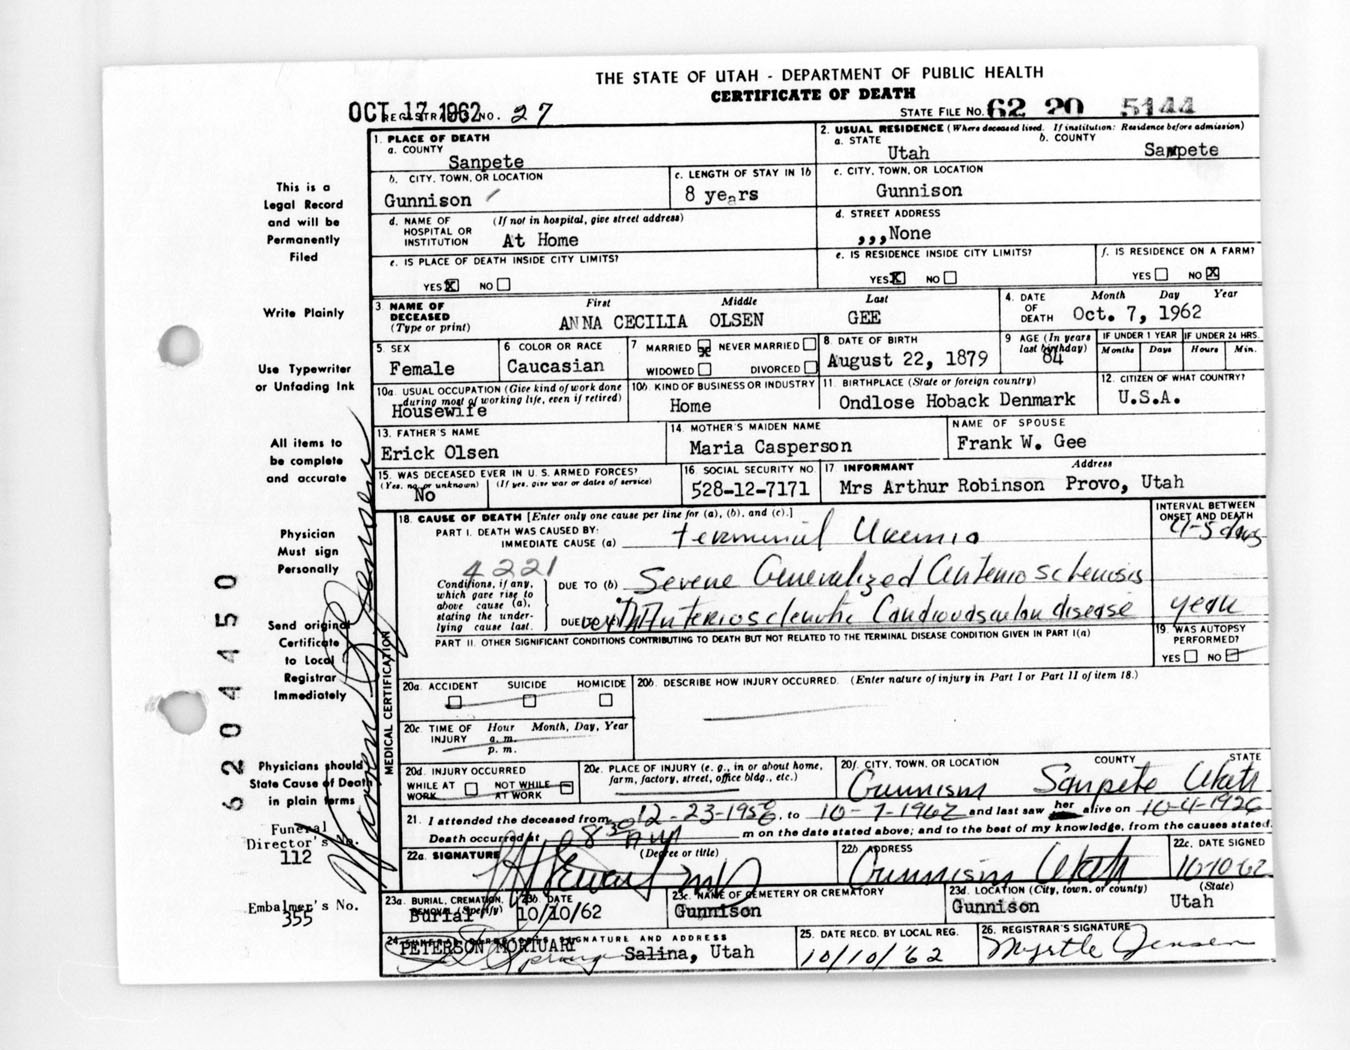 THE STATE OF UTAH - DEPARTMENT OF PUBLIC HEALTH
CERTIFICATE OF DEATH
OCT 17 1962 REGISTRAR'S NO. 27 STATE FILE NO. 62 20 5144
1. PLACE OF DEATH
a. COUNTY
Sanpete
2. USUAL RESIDENCE (Where deceased lived. If institution: Residence before admission)
a. STATE b. COUNTY
Utah Sanpete
b. CITY, TOWN, OR LOCATION
Gunnison
c. LENGTH OF STAY IN 1b
8 years
c. CITY, TOWN, OR LOCATION
Gunnison
d. NAME OF HOSPITAL OR INSTITUTION (If not in hospital, give street address)
At Home
d. STREET ADDRESS
,,,None
e. IS PLACE OF DEATH INSIDE CITY LIMITS?
YES X NO
e. IS RESIDENCE INSIDE CITY LIMITS?
YES X NO
f. IS RESIDENCE ON A FARM?
YES NO X
3 NAME OF DECEASED (Type or print) First Middle Last
ANNA CECILIA OLSEN GEE
4. DATE OF DEATH Month Day Year
Oct. 7, 1962
5. SEX
Female
6 COLOR OR RACE
Caucasian
7 MARRIED X NEVER MARRIED
WIDOWED DIVORCED
8 DATE OF BIRTH
August 22, 1879
9 AGE (In years last birthday)
84
IF UNDER 1 YEAR IF UNDER 24 HRS.
Months Days Hours Min.
10a. USUAL OCCUPATION (Give kind of work done during most of working life, even if retired)
Housewife
10b. KIND OF BUSINESS OR INDUSTRY
Home
11. BIRTHPLACE (State or foreign country)
Ondlose Hoback Denmark
12. CITIZEN OF WHAT COUNTRY?
U.S.A.
13. FATHER'S NAME
Erick Olsen
14. MOTHER'S MAIDEN NAME
Maria Casperson
NAME OF SPOUSE
Frank W. Gee
15. WAS DECEASED EVER IN U. S. ARMED FORCES?
(Yes, no, or unknown) (If yes, give war or dates of service)
No
16. SOCIAL SECURITY NO.
528-12-7171
17. INFORMANT Address
Mrs Arthur Robinson Provo, Utah
18. CAUSE OF DEATH [Enter only one cause per line for (a), (b), and (c).]
INTERVAL BETWEEN ONSET AND DEATH
PART I. DEATH WAS CAUSED BY:
IMMEDIATE CAUSE (a) terminal Uremia 4-5 days
4221
Conditions, if any, which gave rise to above cause (a), stating the underlying cause last.
DUE TO (b) Severe Generalized Arteriosclerosis
DUE with Arteriosclerotic Cardiovascular disease year
PART II. OTHER SIGNIFICANT CONDITIONS CONTRIBUTING TO DEATH BUT NOT RELATED TO THE TERMINAL DISEASE CONDITION GIVEN IN PART I(a)
19. WAS AUTOPSY PERFORMED?
YES NO
MEDICAL CERTIFICATION
20a. ACCIDENT SUICIDE HOMICIDE
20b. DESCRIBE HOW INJURY OCCURRED. (Enter nature of injury in Part I or Part II of item 18.)
20c. TIME OF INJURY Hour Month, Day, Year
a. m.
p. m.
20d. INJURY OCCURRED
WHILE AT WORK NOT WHILE AT WORK
20e. PLACE OF INJURY (e. g., in or about home, farm, factory, street, office bldg., etc.)
20f. CITY, TOWN, OR LOCATION COUNTY STATE
Gunnison Sanpete Utah
21. I attended the deceased from 12-23-1958, to 10-7-1962 and last saw her alive on 10-4-1926
Death occurred at 8 30 AM m on the date stated above; and to the best of my knowledge, from the causes stated.
22a. SIGNATURE (Degree or title)
22b. ADDRESS
Gunnison Utah
22c. DATE SIGNED
10-10-62
23a. BURIAL, CREMATION, REMOVAL (Specify)
Burial
23b. DATE
10/10/62
23c. NAME OF CEMETERY OR CREMATORY
Gunnison
23d. LOCATION (City, town, or county) (State)
Gunnison Utah
24. SIGNATURE AND ADDRESS
PETERSON MORTUARY
Salina, Utah
25. DATE RECD. BY LOCAL REG.
10/10/'62
26. REGISTRAR'S SIGNATURE
Myrtle Jensen
This is a
Legal Record
and will be
Permanently
Filed
Write Plainly
Use Typewriter
or Unfading Ink
All items to
be complete
and accurate
Physician
Must sign
Personally
Send original
Certificate
to Local
Registrar
Immediately
Physicians should
State Cause of Death
in plain terms
Funeral
Director's No.
112
Embalmer's No.
355
6204450